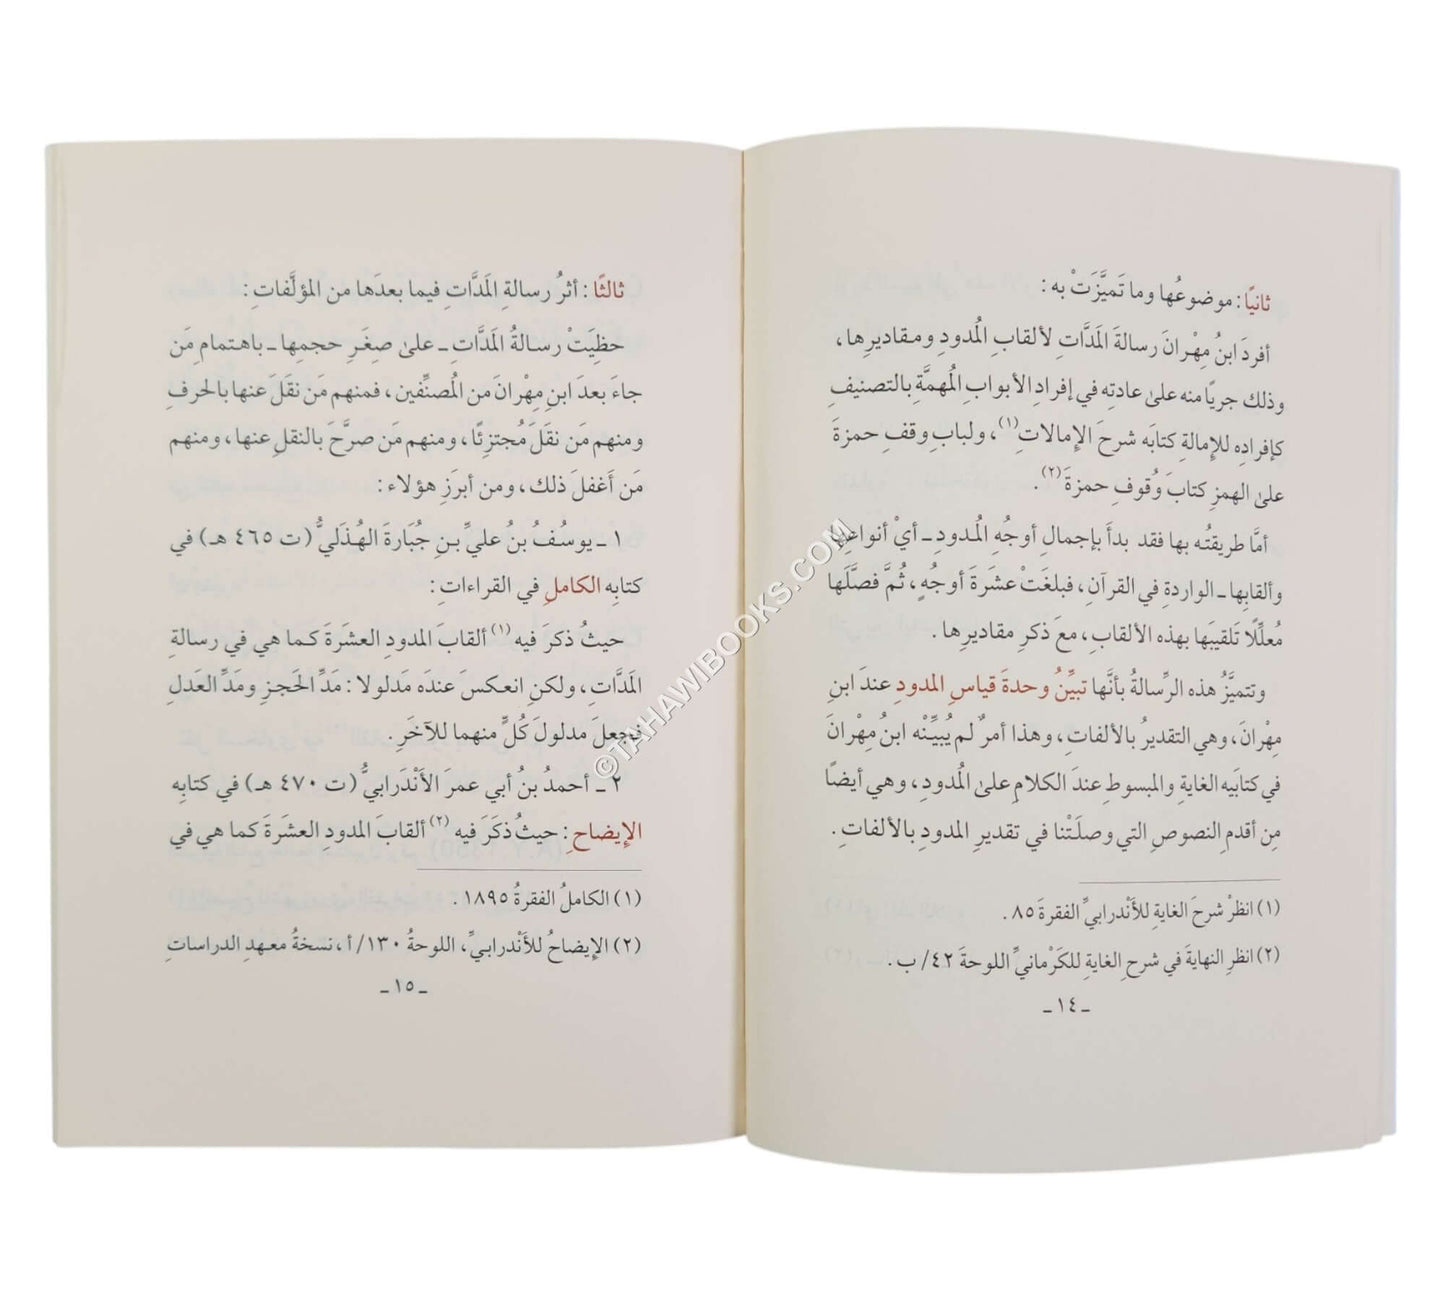 ثانيًا: موضوعُها وما تَميَّزَتْ به:
أفردَ ابنُ مِهْرانَ رسالةَ المَدَّاتِ لألقابِ المُدودِ ومقاديرِها،
وذلك جريًا منه علىٰ عادتِه في إفرادِ الأبوابِ المُهمَّةِ بالتصنيفِ
كإفرادِه للإمالةِ كتابَه شرحَ الإمالاتِ(١)، ولبابِ وقفِ حمزةَ
علىٰ الهمزِ كتابَ وُقوفِ حمزةَ(٢).
أمَّا طريقتُه بها فقد بدأَ بإجمالِ أوجُهِ المُدودِ ـ أيْ أنواعِها
وألقابِها ـ الواردةِ في القرآنِ، فبلغَتْ عشَرةَ أوجُهٍ، ثُمَّ فصَّلَها
مُعلِّلًا تَلقيبَها بهذه الألقابِ، معَ ذكرِ مقاديرِها.
وتتميَّزُ هذه الرِّسالةُ بأنَّها تبيِّنُ وحدةَ قياسِ المدودِ عندَ ابنِ
مِهْرانَ، وهي التقديرُ بالألفاتِ، وهذا أمرٌ لم يُبيِّنْه ابنُ مِهْرانَ
في كتابَيه الغايةِ والمبسوطِ عندَ الكلامِ علىٰ المُدودِ، وهي أيضًا
مِن أقدمِ النصوصِ التي وصلَتْنا في تقديرِ المدودِ بالألفاتِ.
(١) انظرْ شرحَ الغايةِ للأَنْدرابيِّ الفقرةَ ٨٥.
(٢) انظرِ النهايةَ في شرحِ الغايةِ للكَرْمانيِّ اللوحةَ ٤٢/ ب.
ـ ١٤ ـ
ثالثًا: أثرُ رسالةِ المَدَّاتِ فيما بعدَها من المؤلَّفاتِ:
حظِيَتْ رسالةُ المَدَّاتِ ـ علىٰ صِغَرِ حجمِها ـ باهتمامِ مَن
جاءَ بعدَ ابنِ مِهْرانَ من المُصنِّفين، فمنهم مَن نقَلَ عنها بالحرفِ
ومنهم مَن نقَلَ مُجتزِئًا، ومنهم مَن صرَّحَ بالنقلِ عنها، ومنهم
مَن أغفلَ ذلك، ومن أبرَزِ هؤلاء:
١ ـ يوسُفُ بنُ عليِّ بنِ جُبَارةَ الهُذَليُّ (ت ٤٦٥ هـ) في
كتابِه الكاملِ في القراءاتِ:
حيثُ ذكرَ فيه(١) ألقابَ المدودِ العشَرةَ كما هي في رسالةِ
المَدَّاتِ، ولكنِ انعكسَ عندَه مَدلولا: مَدِّ الحَجزِ ومَدِّ العَدلِ
فجعلَ مدلولَ كُلٍّ منهما للآخَرِ.
٢ ـ أحمدُ بنُ أبي عمرَ الأَنْدَرابيُّ (ت ٤٧٠ هـ) في كتابِه
الإيضاحِ: حيثُ ذكَرَ فيه(٢) ألقابَ المدودِ العشَرةَ كما هي في
(١) الكاملُ الفقرةُ ١٨٩٥.
(٢) الإيضاحُ للأَنْدرابيِّ، اللوحةُ ١٣٠/ أ، نسخةُ معهدِ الدراساتِ
ـ ١٥ ـ
©TAHAWIBOOKS.COM